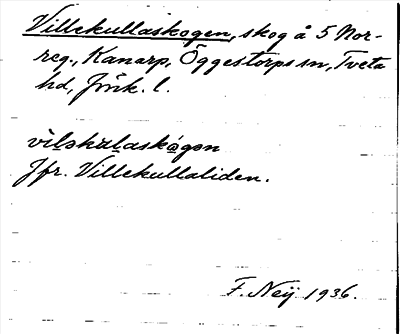 Villekullaskogen, skog å 5 Nor-
reg., Kanarp, Öggestorps sn, Tveta
hd, Jönk. l.
Jfr. Villekullaliden.
F. Neij 1936.